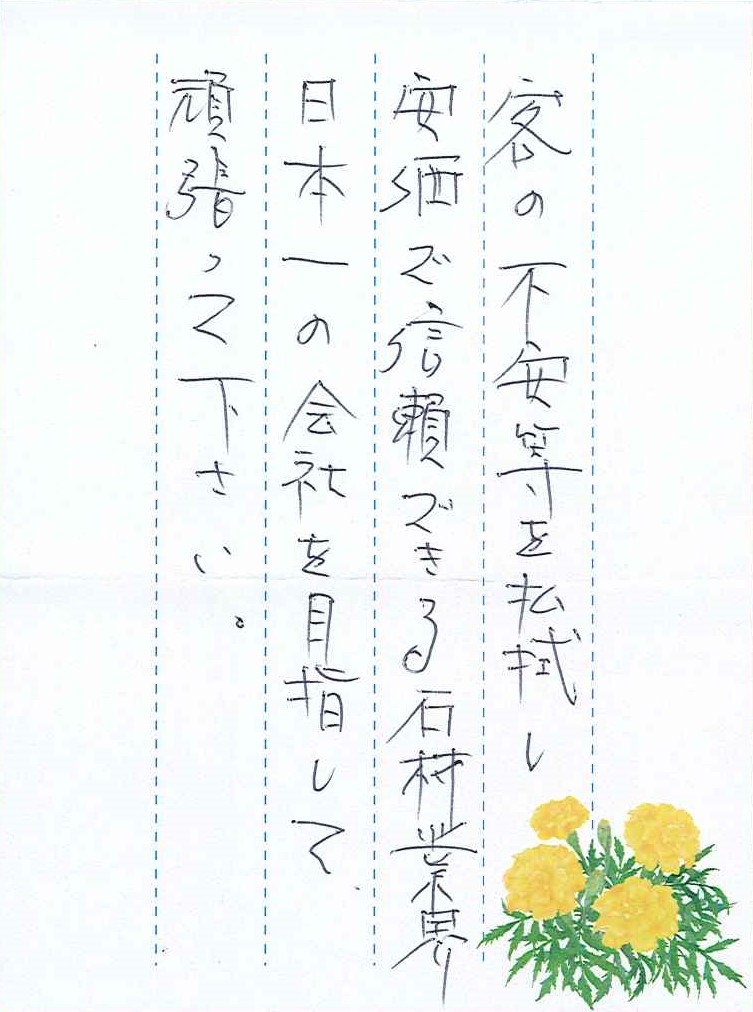 客の不安等を払拭し
安価で信頼できる石材業界
日本一の会社を目指して、
頑張って下さい。